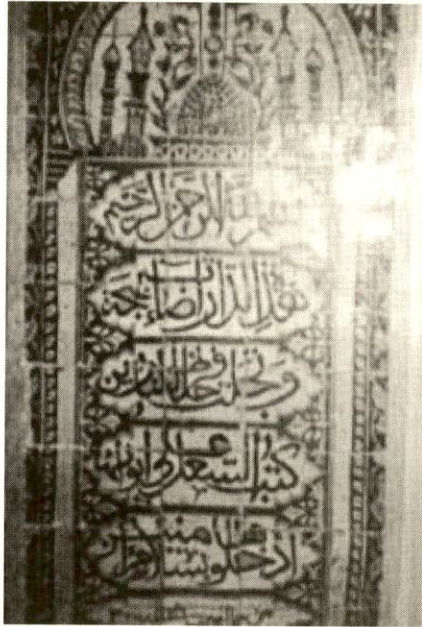 بسم الله الرحمن الرحيم
الدار أضاءت بهجة
وتجلت للناظرين
كتب السعد على أبوابها
ادخلوها بسلام آمنين